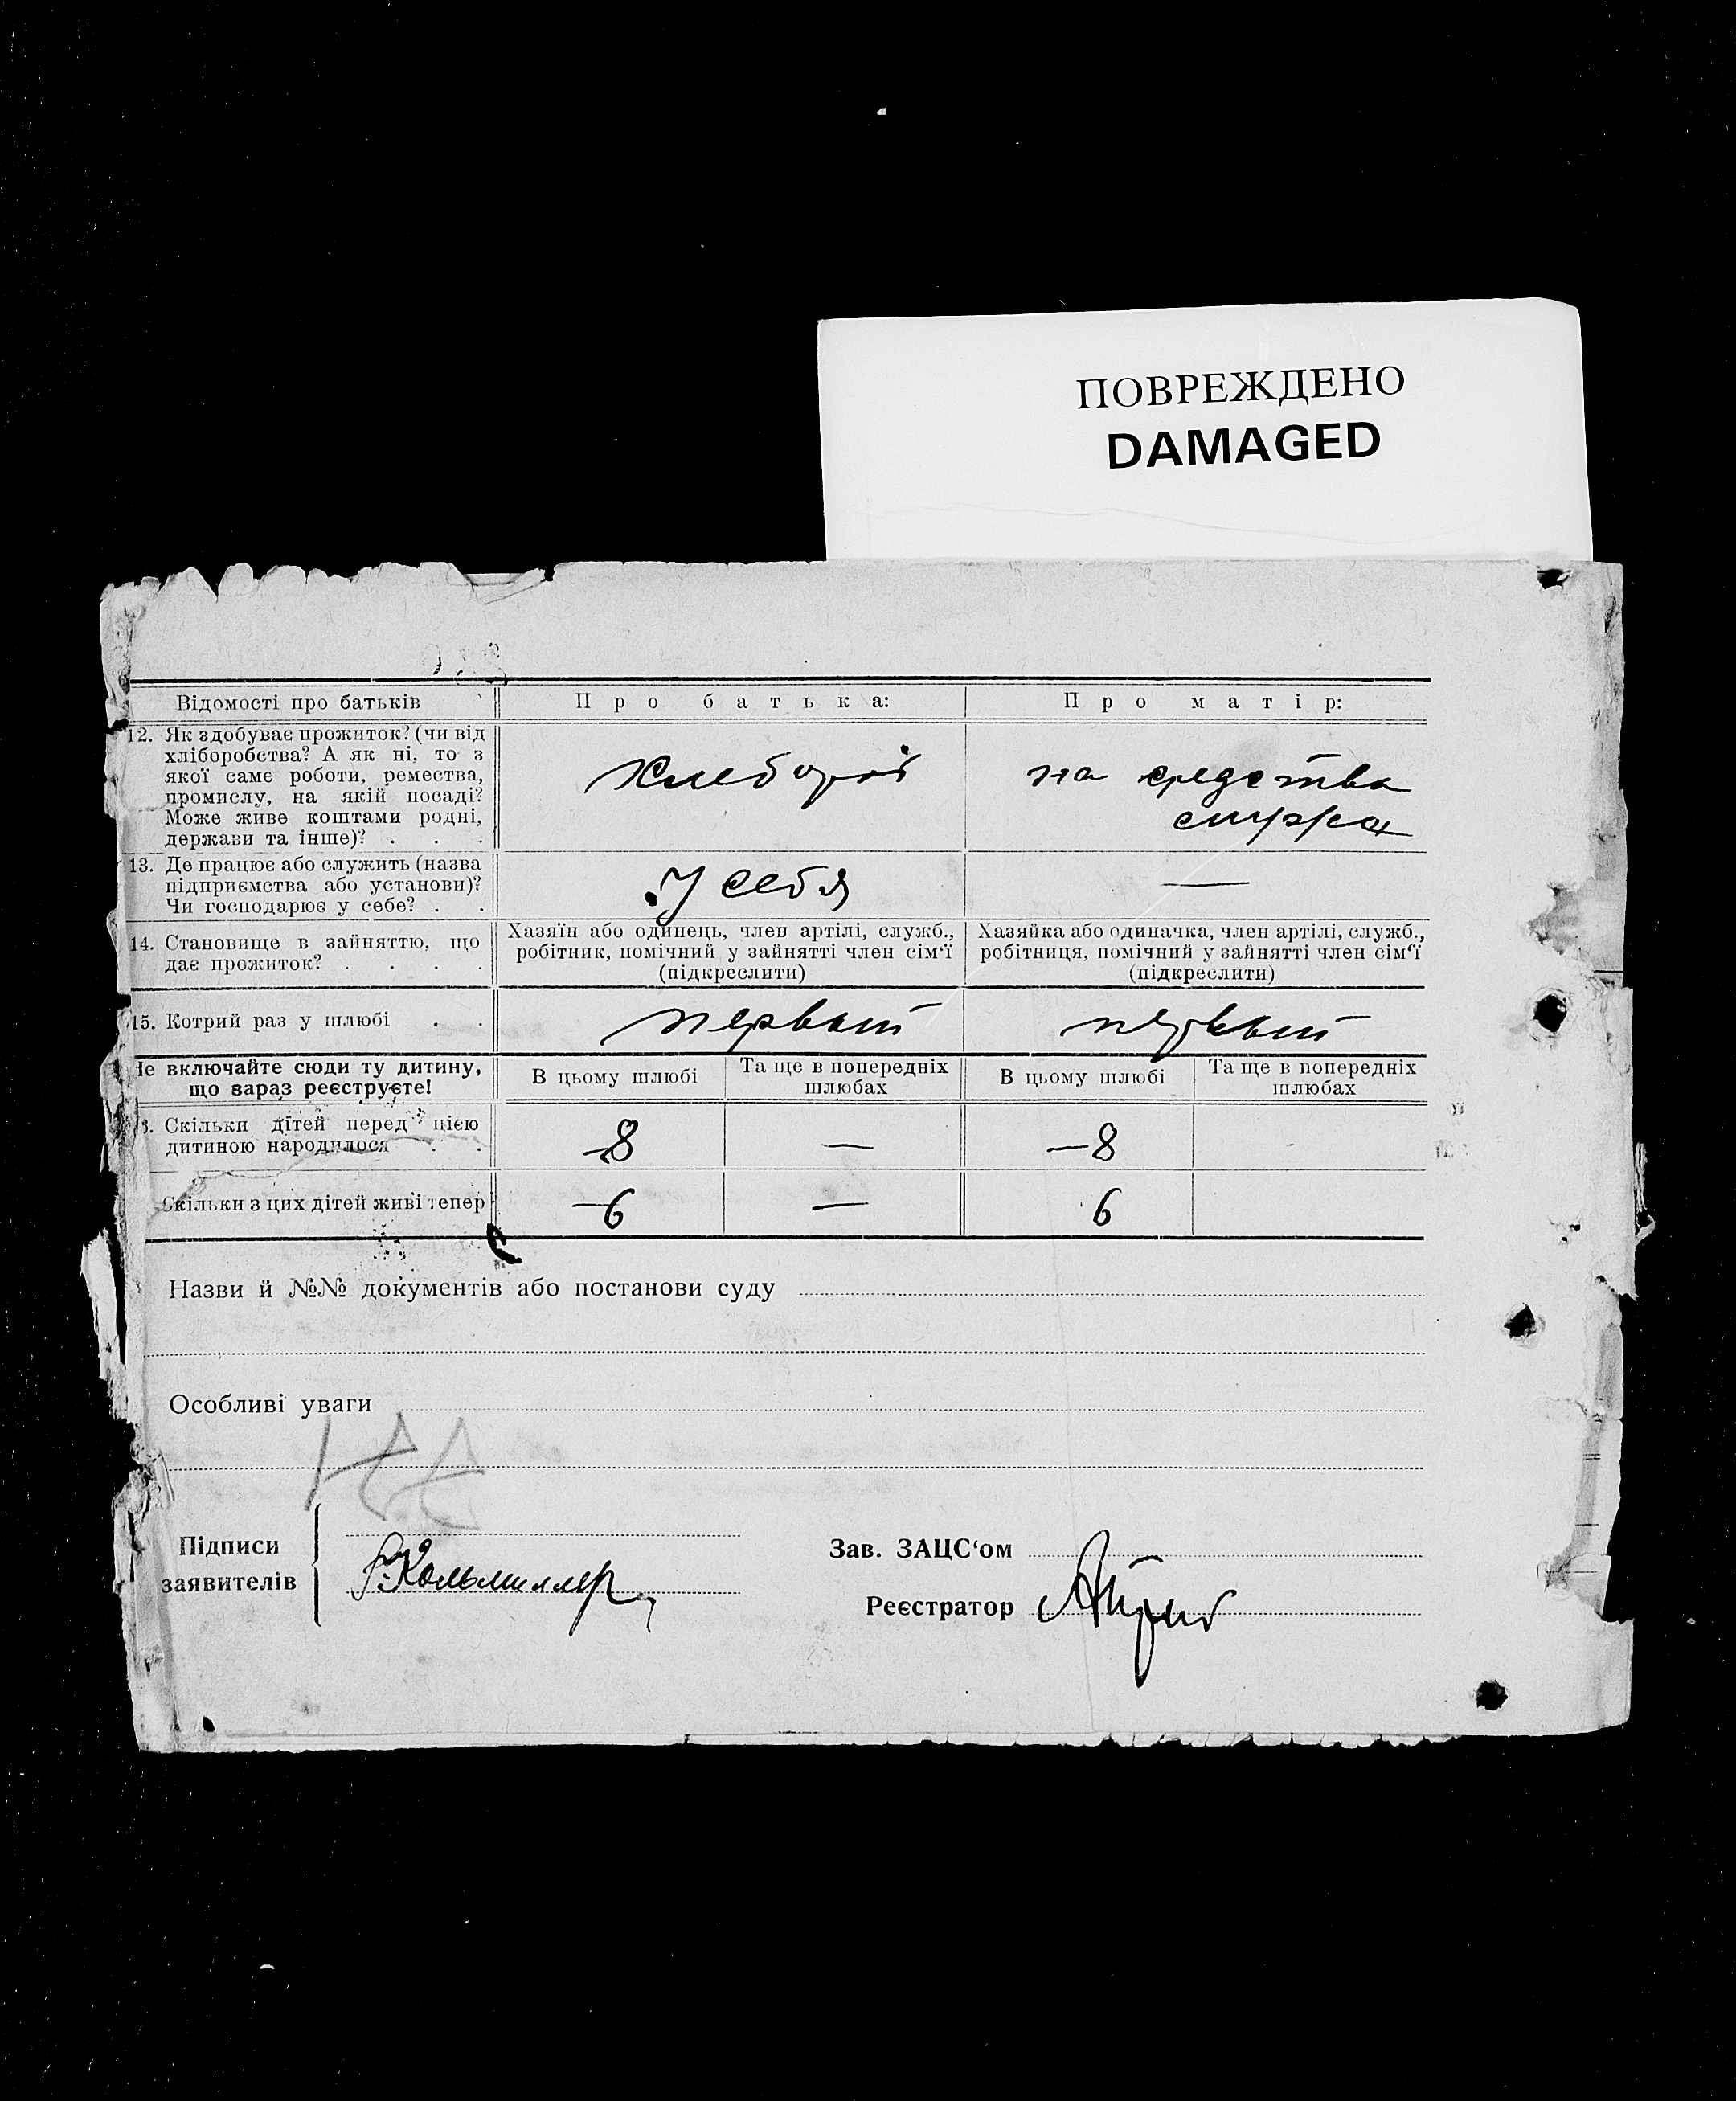 ПОВРЕЖДЕНО
DAMAGED
Відомості про батьків
Про батька:
Про матір:
12. Як здобуває прожиток? (чи від
хліборобства? А як ні, то з
якої саме роботи, ремества,
промислу, на якій посаді?
Може живе коштами родні,
держави та інше)? . . .
Хлебороб
на средства
супруга
13. Де працює або служить (назва
підприємства або установи)?
Чи господарює у себе? . .
У себя
—
14. Становище в зайняттю, що
дає прожиток? . . . .
Хазяїн або одинець, член артілі, служб.,
робітник, помічний у зайнятті член сім‘ї
(підкреслити)
Хазяйка або одиначка, член артілі, служб.,
робітниця, помічний у зайнятті член сім‘ї
(підкреслити)
15. Котрий раз у шлюбі . .
первый
первый
Не включайте сюди ту дитину,
що зараз реєструєте!
В цьому шлюбі
Та ще в попередніх
шлюбах
В цьому шлюбі
Та ще в попередніх
шлюбах
Скільки дітей перед цією
дитиною народилося . .
—8
—
—8
Скільки з цих дітей живі тепер
—6
—
6
Назви й №№ документів або постанови суду
Особливі уваги
Підписи
заявителів
Кольмиллер
Зав. ЗАЦС‘ом
Реєстратор